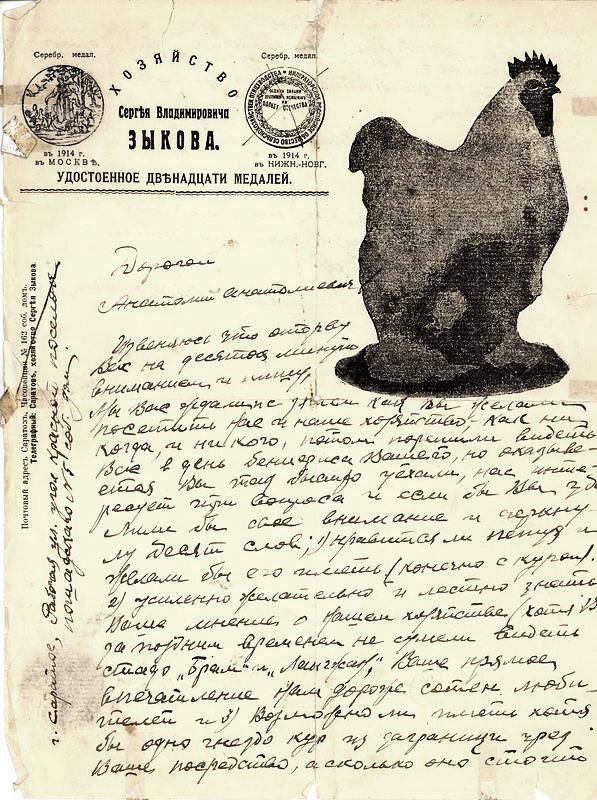 Серебр. медал.
ХОЗЯЙСТВО
Серебр. медал.
Сергѣя Владимировича
ЗЫКОВА.
въ 1914 г.
въ МОСКВѢ.
въ 1914 г.
въ НИЖН.-НОВГ.
УДОСТОЕННОЕ ДВѢНАДЦАТИ МЕДАЛЕЙ.
Почтовый адресъ Саратовъ, № 162 соб. домъ.
Телеграфный Саратовъ, хозяйство Сергѣя Зыкова.
г. Саратов, Рабочая ул. угол Красной поселок
№ 5 соб. дом.
Дорогой
Анатолий Анатолиевич,
Извеняюсь что оторву
Вас на десяток минут
вниманием и пишу,
Мы Вас ждали с Вы желали
посетить нас и наше хозяйство - как ни
когда, и ни кого, потом порешили видеть
Вас в день бенефиса Вашего, но оказыва-
ется Вы так быстро уехали, нас инте
ресует три вопроса и если бы Вы уде
лили бы свое внимание и
му десят слов; 1) нравится ли петух и
желали бы его иметь (конечно с курой).
2) усиленно желательно и лестно знать
Ваше мнение о нашем хозяйстве (хотя Вы
за поздним временем не сумели видеть
стадо „Брам" и „Лангжан", Ваше прямое
впечатление нам дороже сотен люби-
телей и 3) Возможно ли иметь хотя
бы одно гнездо кур из заграници чрез
Ваше посредство, а сколько оно стоит